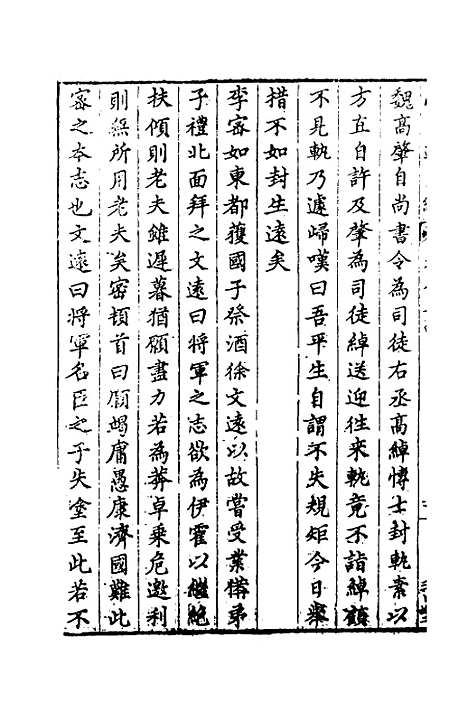 魏高肇自尚書令為司徒右丞高綽博士封軌素以
方直自許及肇為司徒綽送迎往來軌竟不詣綽顧
不見軌乃遽歸嘆曰吾平生自謂不失規矩今日舉
措不如封生遠矣
李密如東都獲國子祭酒徐文遠以故嘗受業備弟
子禮北面拜之文遠曰將軍之志欲為伊霍以繼絶
扶傾則老夫雖遲暮猶願盡力若為莽卓乗危邀利
則無所用老夫矣密頓首曰願竭庸愚康濟國難此
密之本志也文遠曰將軍名臣之子失塗至此若不